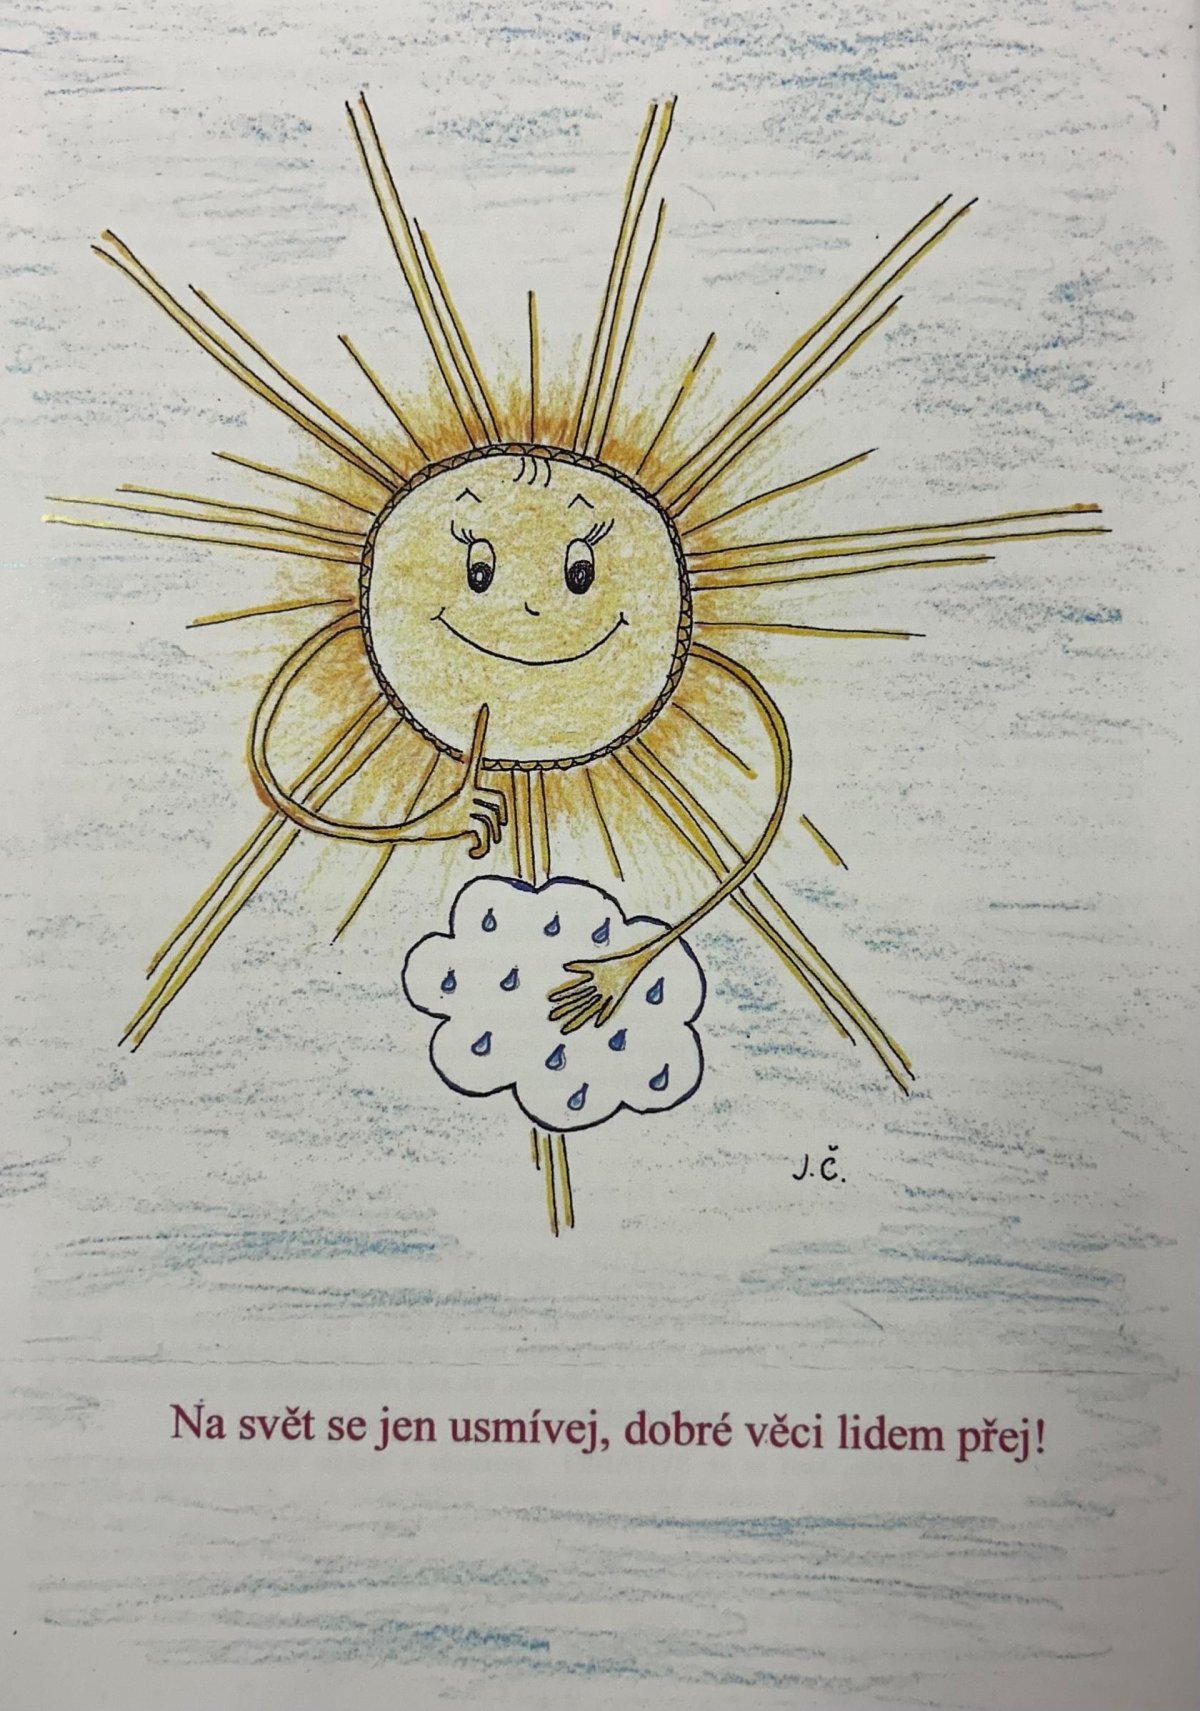 J.Č.
Na svět se jen usmívej, dobré věci lidem přej!